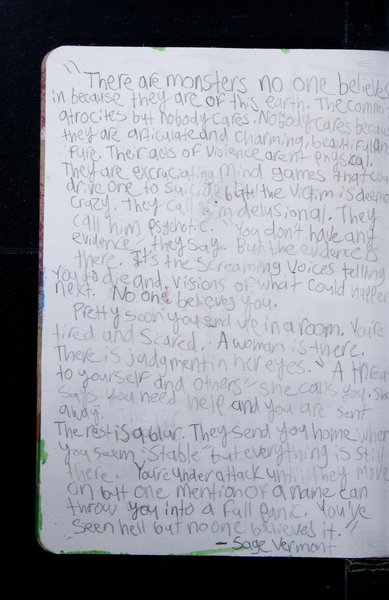 "There are monsters no one believes
in because they are of this earth. The comm
atrocites but nobody cares. Nobody cares becau
they are articulate and charming, beautiful an
pure. Their acts of violence aren't physical.
They are excruciating mind games that cou
drive one to suicide but the victim is deeme
crazy. They call him delusional. They
call him psychotic. "You don't have any
evidence" they say. But the evidence is
there. It's the screaming voices telling
you to die and visions of what could happen
next. No one believes you.
Pretty soon you end up in a room. You're
tired and scared. A woman is there.
There is judgment in her eyes. "A threat
to yourself and others" she calls you. She
says you need help and you are sent
away.
The rest is a blur. They send you home when
you seem "stable" but everything is still
there. You're under attack until they move
on but one mention of a name can
throw you into a full panic. You've
seen hell but no one believes it."
- Sage Vermont